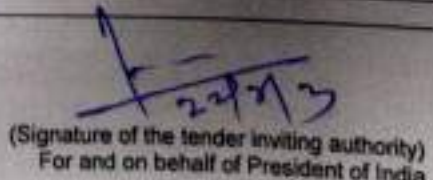 (Signature of the tender inviting authority)
For and on behalf of President of India